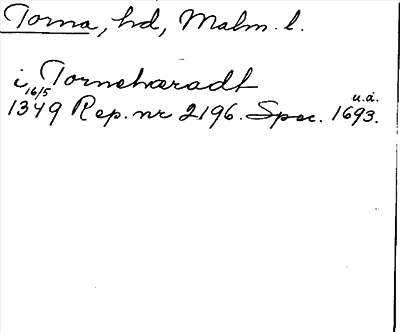 Torna, hd, Malm. l.
i Tornehæradt
1349 16/5 Rep. nr 2196. Spec. 1693. u.å.